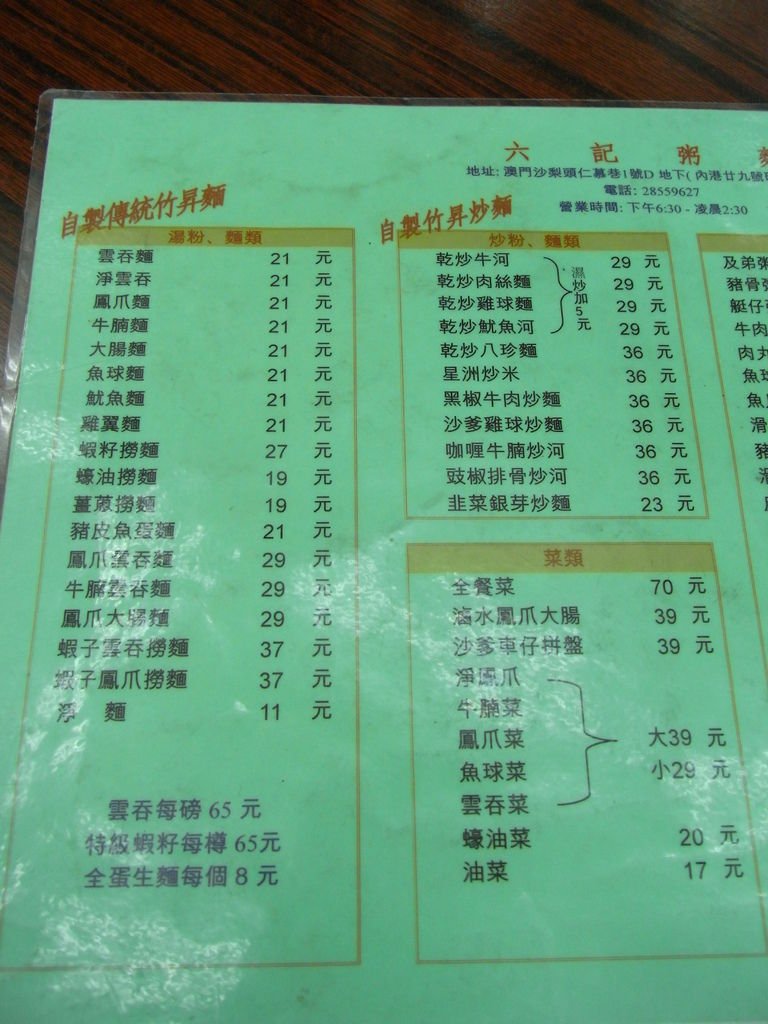 六記粥
地址: 澳門沙梨頭仁慕巷1號D 地下( 內港廿九號
電話: 28559627
營業時間: 下午6:30 - 凌晨2:30
自製傳統竹昇麵
湯粉、麵類
雲吞麵 21 元
淨雲吞 21 元
鳳爪麵 21 元
牛腩麵 21 元
大腸麵 21 元
魚球麵 21 元
魷魚麵 21 元
雞翼麵 21 元
蝦籽撈麵 27 元
蠔油撈麵 19 元
薑蔥撈麵 19 元
豬皮魚蛋麵 21 元
鳳爪雲吞麵 29 元
牛腩雲吞麵 29 元
鳳爪大腸麵 29 元
蝦子雲吞撈麵 37 元
蝦子鳳爪撈麵 37 元
淨 麵 11 元
雲吞每磅 65 元
特級蝦籽每樽 65元
全蛋生麵每個 8 元
自製竹昇炒麵
炒粉、麵類
乾炒牛河 29 元
乾炒肉絲麵 29 元
乾炒雞球麵 29 元
乾炒魷魚河 29 元
濕炒加5元
乾炒八珍麵 36 元
星洲炒米 36 元
黑椒牛肉炒麵 36 元
沙爹雞球炒麵 36 元
咖喱牛腩炒河 36 元
豉椒排骨炒河 36 元
韭菜銀芽炒麵 23 元
菜類
全餐菜 70 元
滷水鳳爪大腸 39 元
沙爹車仔拼盤 39 元
淨鳳爪
牛腩菜
鳳爪菜 大39 元
魚球菜 小29 元
雲吞菜
蠔油菜 20 元
油菜 17 元
及弟粥
豬骨
艇仔
牛肉
肉丸
魚
魚
滑
豬